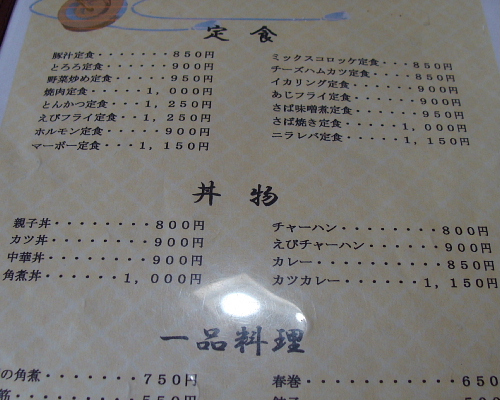 定食
豚汁定食・・・・・・・850円
とろろ定食・・・・・・900円
野菜炒め定食・・・・・950円
焼肉定食・・・・・1,000円
とんかつ定食・・・1,250円
えびフライ定食・・1,250円
ホルモン定食・・・・・900円
マーボー定食・・・1,150円
ミックスコロッケ定食・・・850円
チーズハムカツ定食・・・・850円
イカリング定食・・・・・・900円
あじフライ定食・・・・・・900円
さば味噌煮定食・・・・・・950円
さば焼き定食・・・・・1,000円
ニラレバ定食・・・・・1,150円
丼物
親子丼・・・・・・・・800円
カツ丼・・・・・・・・900円
中華丼・・・・・・・・900円
角煮丼・・・・・・1,000円
チャーハン・・・・・・・・800円
えびチャーハン・・・・・・900円
カレー・・・・・・・・・・850円
カツカレー・・・・・・1,150円
一品料理
の角煮・・・・・・・・750円
筋・・・・・・・・・・550円
春巻・・・・・・・・・・・・650